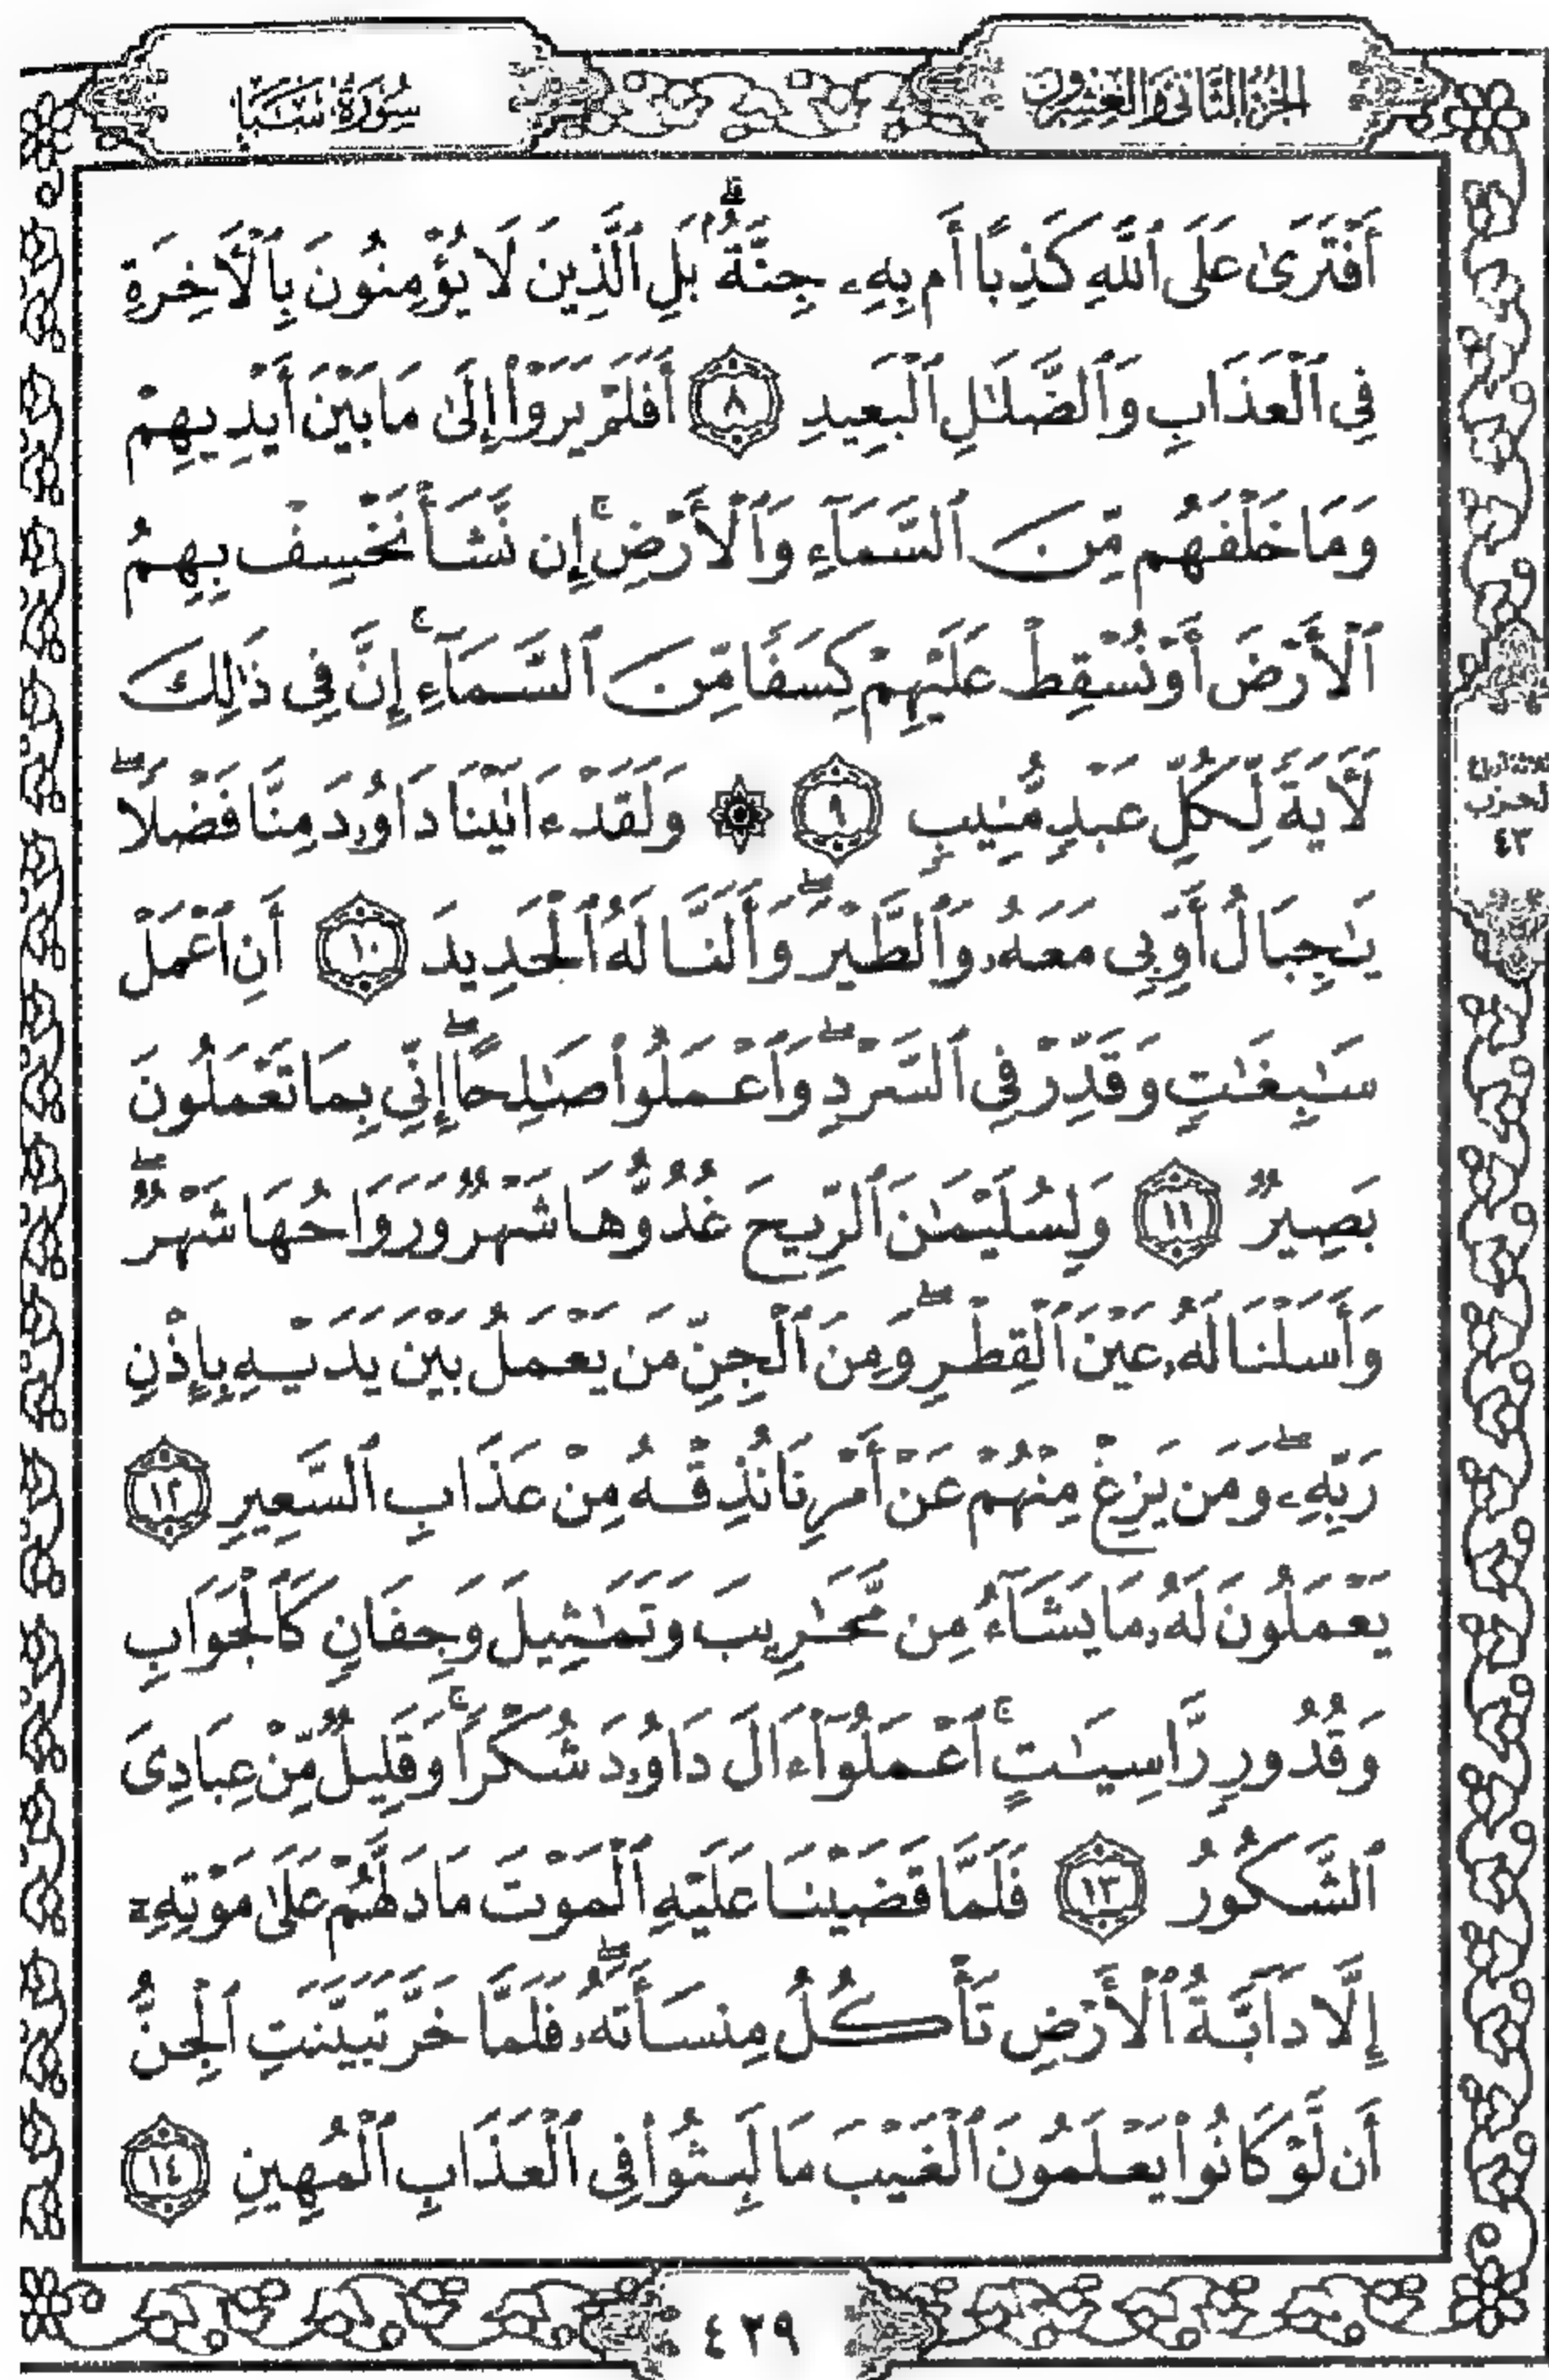 الجزء الثاني والعشرون
سورة سبإ
أَفْتَرَىٰ عَلَى ٱللَّهِ كَذِبًا أَم بِهِۦ جِنَّةُۢ ۗ بَلِ ٱلَّذِينَ لَا يُؤْمِنُونَ بِٱلْأَخِرَةِ
فِى ٱلْعَذَابِ وَٱلضَّلَٰلِ ٱلْبَعِيدِ ٨ أَفَلَمْ يَرَوْا۟ إِلَىٰ مَا بَيْنَ أَيْدِيهِمْ
وَمَا خَلْفَهُم مِّنَ ٱلسَّمَآءِ وَٱلْأَرْضِ ۚ إِن نَّشَأْ نَخْسِفْ بِهِمُ
ٱلْأَرْضَ أَوْ نُسْقِطْ عَلَيْهِمْ كِسَفًا مِّنَ ٱلسَّمَآءِ ۚ إِنَّ فِى ذَٰلِكَ
لَأَيَةً لِّكُلِّ عَبْدٍ مُّنِيبٍ ٩ ۞ وَلَقَدْ ءَاتَيْنَا دَاوُۥدَ مِنَّا فَضْلًا ۖ
يَٰجِبَالُ أَوِّبِى مَعَهُۥ وَٱلطَّيْرَ ۖ وَأَلَنَّا لَهُ ٱلْحَدِيدَ ١٠ أَنِ ٱعْمَلْ
سَٰبِغَٰتٍ وَقَدِّرْ فِى ٱلسَّرْدِ ۖ وَٱعْمَلُوا۟ صَٰلِحًا ۖ إِنِّى بِمَا تَعْمَلُونَ
بَصِيرٌ ١١ وَلِسُلَيْمَٰنَ ٱلرِّيحَ غُدُوُّهَا شَهْرٌ وَرَوَاحُهَا شَهْرٌ ۖ
وَأَسَلْنَا لَهُۥ عَيْنَ ٱلْقِطْرِ ۖ وَمِنَ ٱلْجِنِّ مَن يَعْمَلُ بَيْنَ يَدَيْهِ بِإِذْنِ
رَبِّهِۦ ۖ وَمَن يَزِغْ مِنْهُمْ عَنْ أَمْرِنَا نُذِقْهُ مِنْ عَذَابِ ٱلسَّعِيرِ ١٢
يَعْمَلُونَ لَهُۥ مَا يَشَآءُ مِن مَّحَٰرِيبَ وَتَمَٰثِيلَ وَجِفَانٍ كَٱلْجَوَابِ
وَقُدُورٍ رَّاسِيَٰتٍ ۚ ٱعْمَلُوٓا۟ ءَالَ دَاوُۥدَ شُكْرًا ۚ وَقَلِيلٌ مِّنْ عِبَادِىَ
ٱلشَّكُورُ ١٣ فَلَمَّا قَضَيْنَا عَلَيْهِ ٱلْمَوْتَ مَا دَلَّهُمْ عَلَىٰ مَوْتِهِۦٓ
إِلَّا دَآبَّةُ ٱلْأَرْضِ تَأْكُلُ مِنسَأَتَهُۥ ۖ فَلَمَّا خَرَّ تَبَيَّنَتِ ٱلْجِنُّ
أَن لَّوْ كَانُوا۟ يَعْلَمُونَ ٱلْغَيْبَ مَا لَبِثُوا۟ فِى ٱلْعَذَابِ ٱلْمُهِينِ ١٤
الحزب
٤٣
٤٢٩